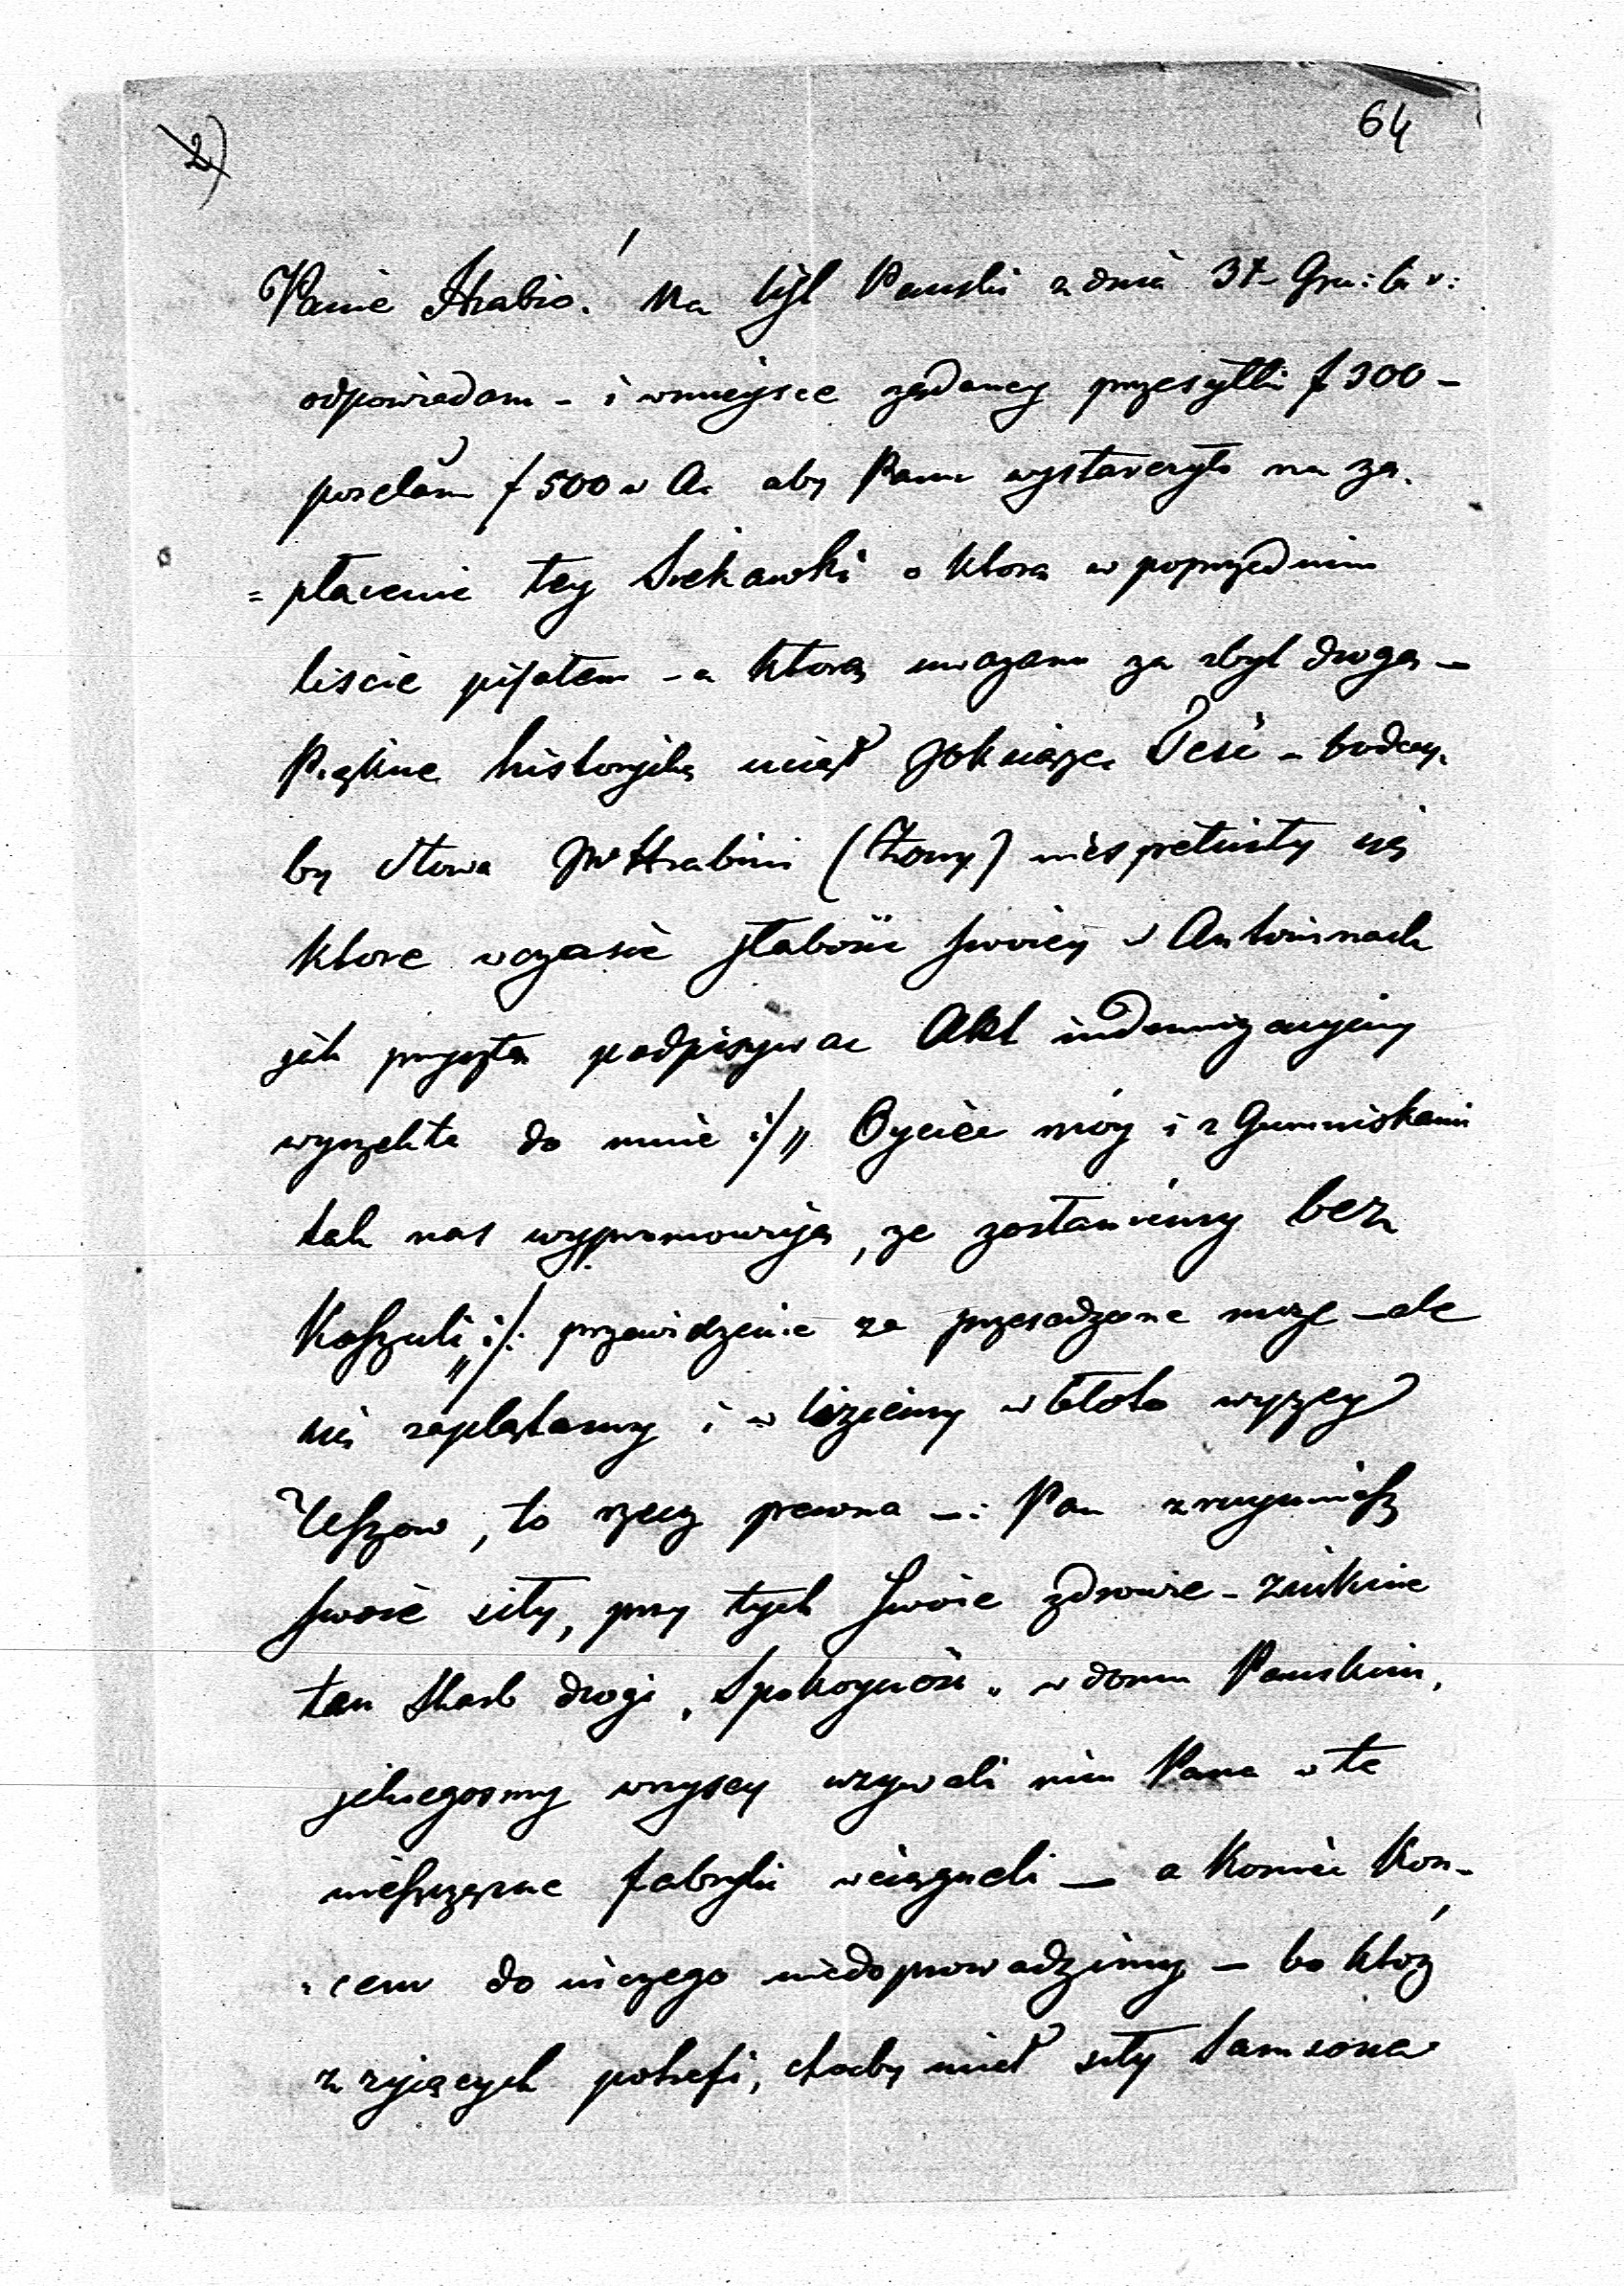 2)
64
Panie Hrabio! Na list Pański z dnia 31- Gru: b: r:
odpowiadam - i wmieysce rządaney przesyłki f 300 -
poselam f 500 w A. aby Panu wystarczyło na za.
= płacenie tey Siekawki o ktora w poprzednim
liscie pisałem - a ktorą uwazam za zbyt drogą -
Piękne historyiką miał JO ksiąze Teść - bodey,
by słowa JW Hrabini (Żony) nie spełniły się
ktore wczasie słabości swoiey w Antoninach
jak przyszło podpisywac Akt indemnizacyiny
wyrzekła do mnie :/ " Oyciec móy i z Gumniskami
tak nas wypromowuja, ze zostaniemy bez
Koszuli " :/. przewidzenie za przesadzone moze - ale
się zaplątamy i w liziemy w błoto wyzey
Uszow, to rzecz pewna -: Pan zruynuiesz
swoie siły, przy tych swoie zdrowie - zniknie
ten skarb drogi „Spokoyność" w domu Pańskim,
jakiegosmy wszyscy uzywali nim Pana w te
nieszczęsne fabryki wciągneli — a koniec kon-
= cem do niczego niedoprowadzimy - bo któz
z zyjących potrafi, choćby miał siły Samsona